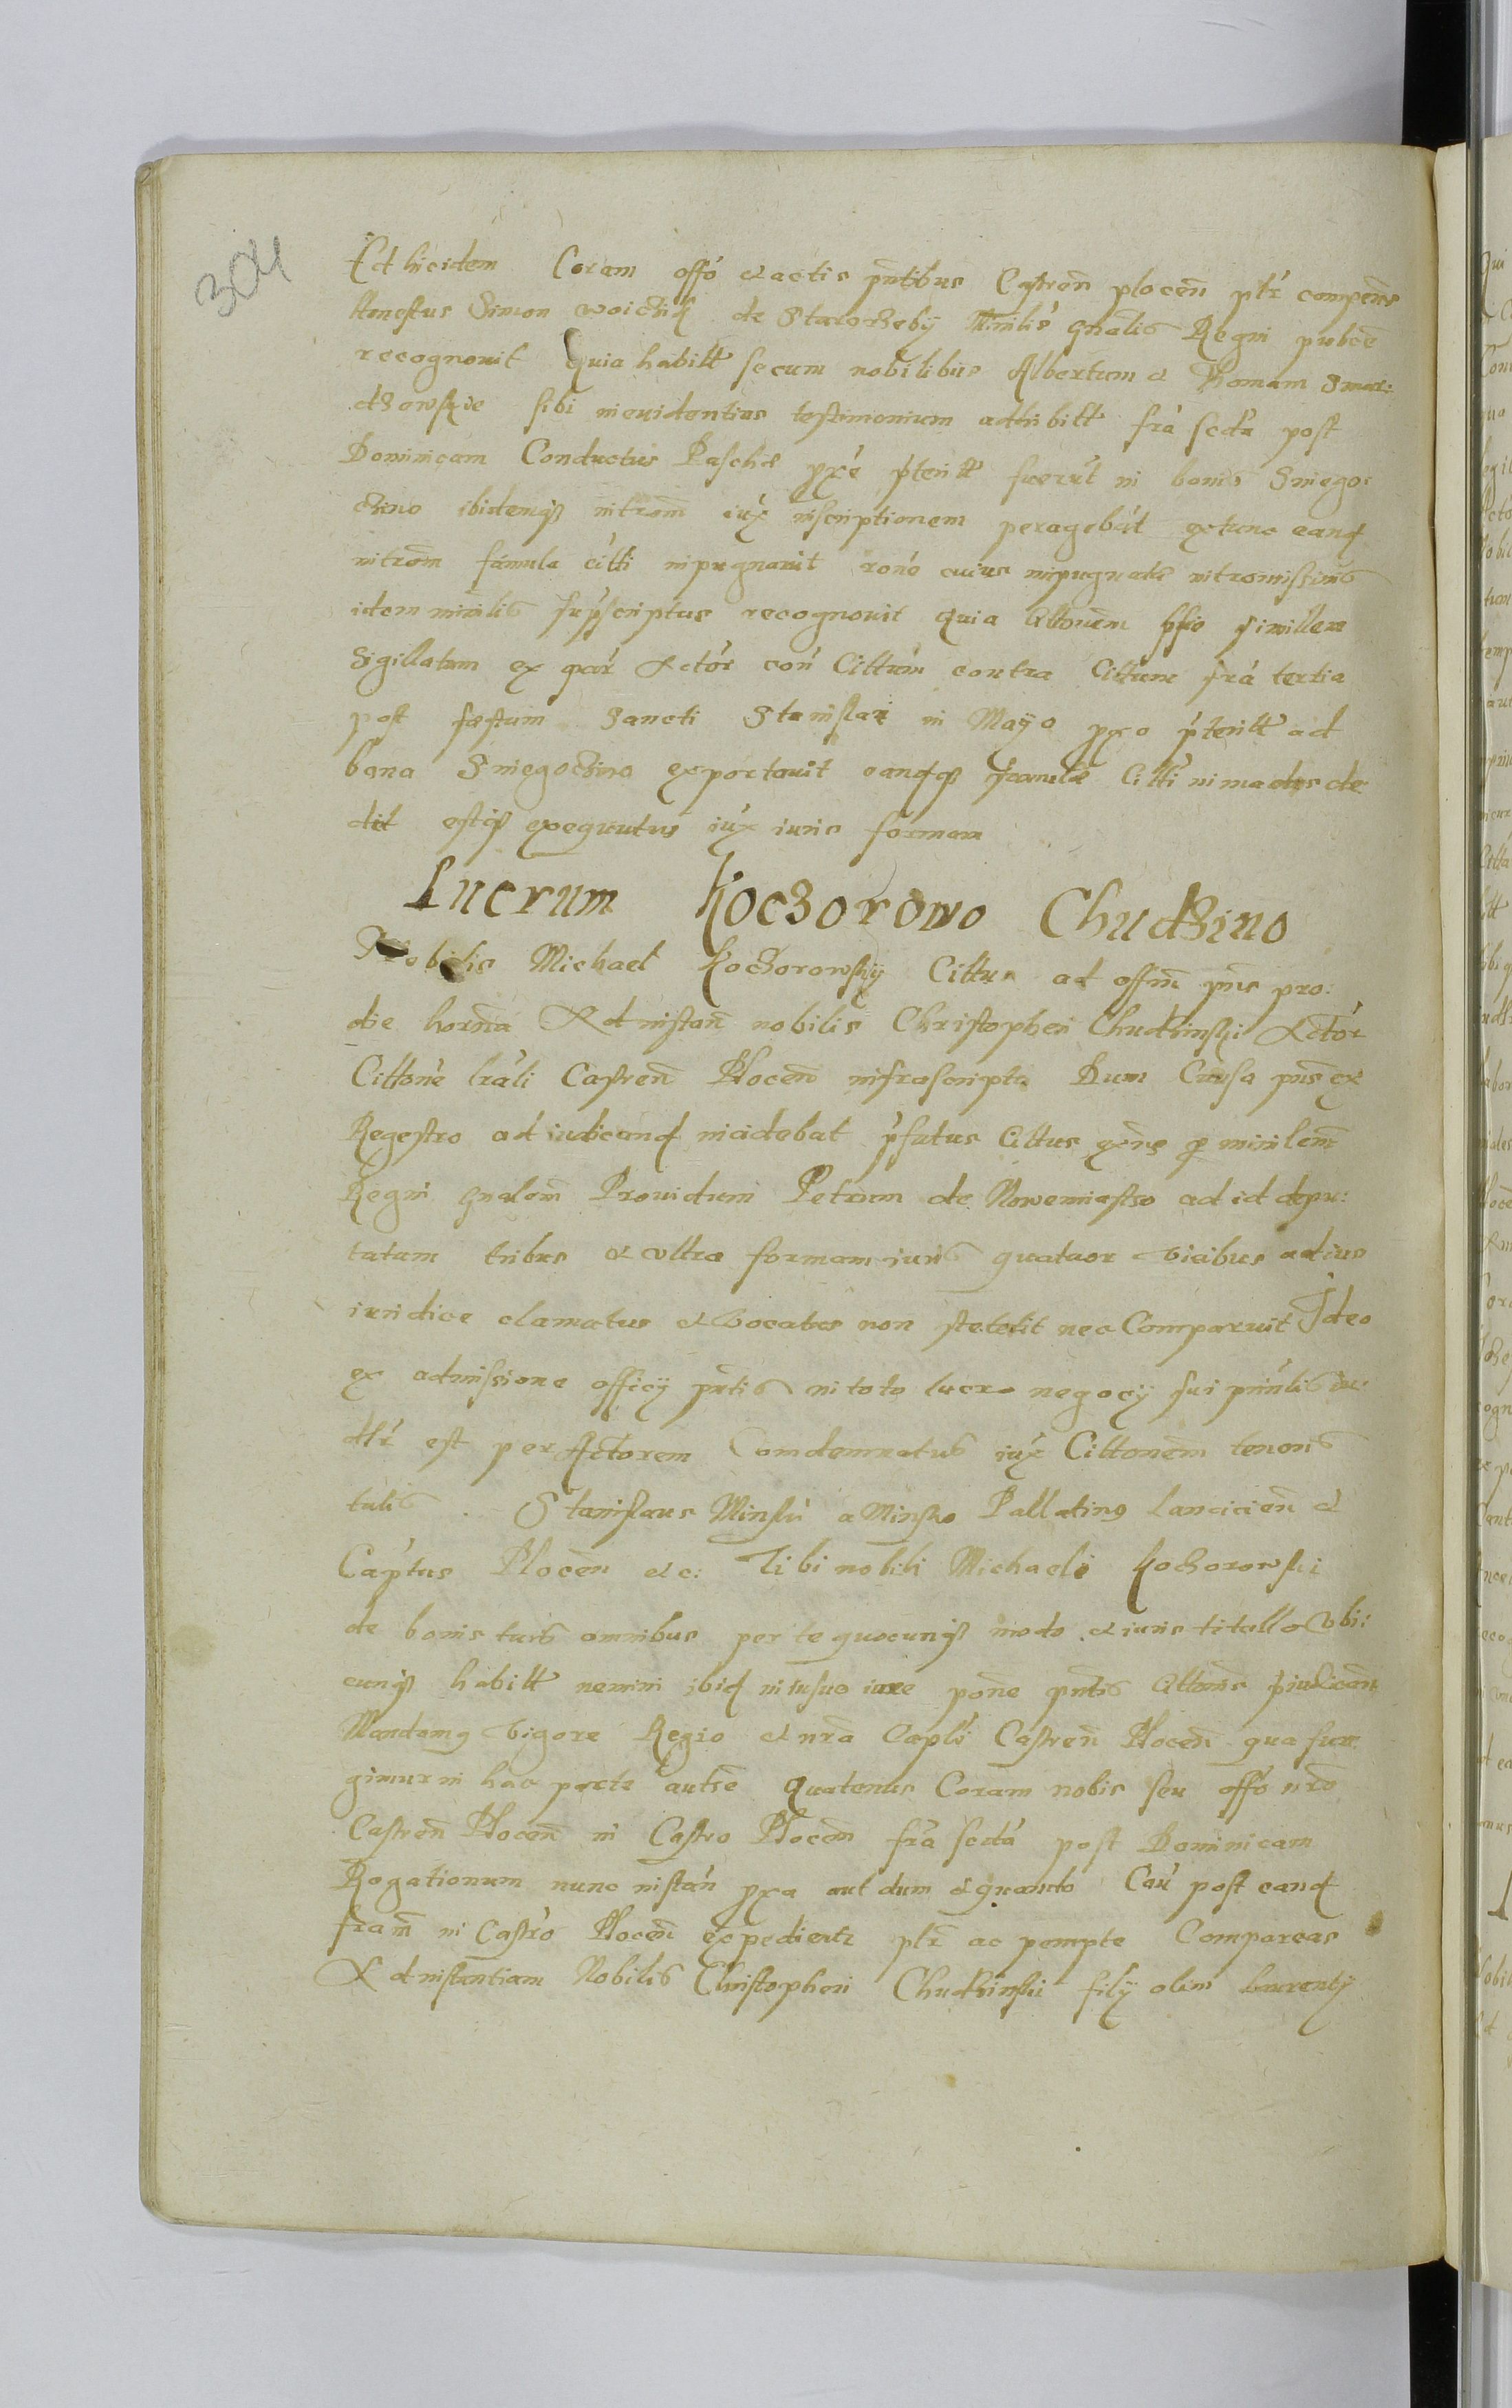 304
Et hicidem Coram offo et actis pntibus Castren plocen plr comparens
Honestus Simon de Starorzeby Minilis gnalis Regni pubce
recognovit Quia habitt secum nobilibus Albertum et Thomam Smar:
dzowskie sibi in evidentius testimonium adhibitt fra scda post
Dominicam Conductus Paschae pxe pteritt fuerut in bonis Sniego:
czino ibidemq introm iux inscriptionem peragebat extunc eand
introm famula citti inpugnavit rone cuius inpugnatae intromissionis
idem minilis suprscriptus recognovit Quia Cittonem similem
Sigillatam ex par Actor con Cittum contra Cittum fra tertia
post festum Sancti Stanislai in Mayo pxo pteritt ad
bona Sniegoczino exportavit eandq famulae Citti in manus de
dit estq exequutus iux iuris formam
Lucrum Koczorowo Chudzino
Nobilis Michael Koczorowskij Cittus ad offm pns pro:
die horna Ad instan nobilis Christopheri Chudzinski Actor
Cittone lrali Castren Plocen infrascripta Dum Causa pns ex
Regestro ad iudicand incidebat pfatus Cittus exns p minilem
Regni gnalem Providum Petrum de Nowemiasto ad id depu:
tatum tribus et ultra formam iuris quatuor vicibus ad ius
iuridice clamatus et vocatus non stetetit nec Comparuit Ideo
ex admissione officij pntis in toto lucro negocij sui prinlis
dlr est per Actorem Condemnatus iux Cittonem tenoris
talis Stanislaus Minski a Minsko Pallatinus Lancicien et
Captus Plocen etc: Tibi nobili Michaeli Koczorowski
de bonis tuis omnibus per te quocunq modo et iuris titullo Ubi:
cunq habitt nemini ibid in suo iure pone pntis Cittonis piudican
Mandamus vigore Regio et nra Capli Castren Plocen qua fun
gimur in hac parte autte Quatenus Coram nobis seu offo nro
Castren Plocen in Castro Plocen fra scda post Dominicam
Rogationum nunc instan pxa aut dum et quando Cau post eand
fram in Castro Plocen expedientr plr ac pempte Compareas
Ad instantiam Nobilis Christopheri Chudzinski filij olim Laurentij